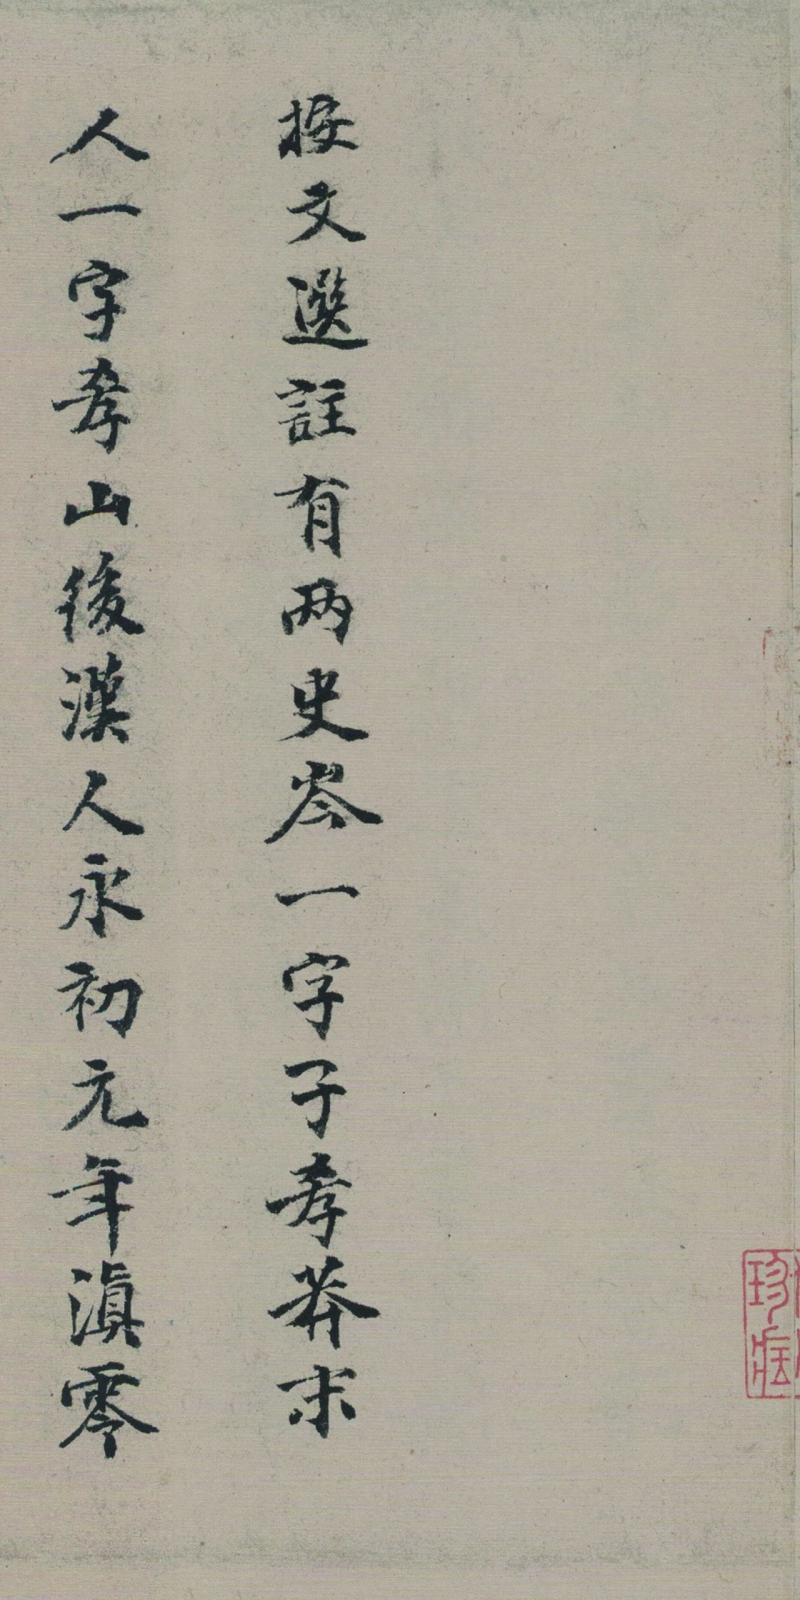 按文選註有两史岑一字子孝莽末
人一字孝山後漢人永初元年滇零
珍藏